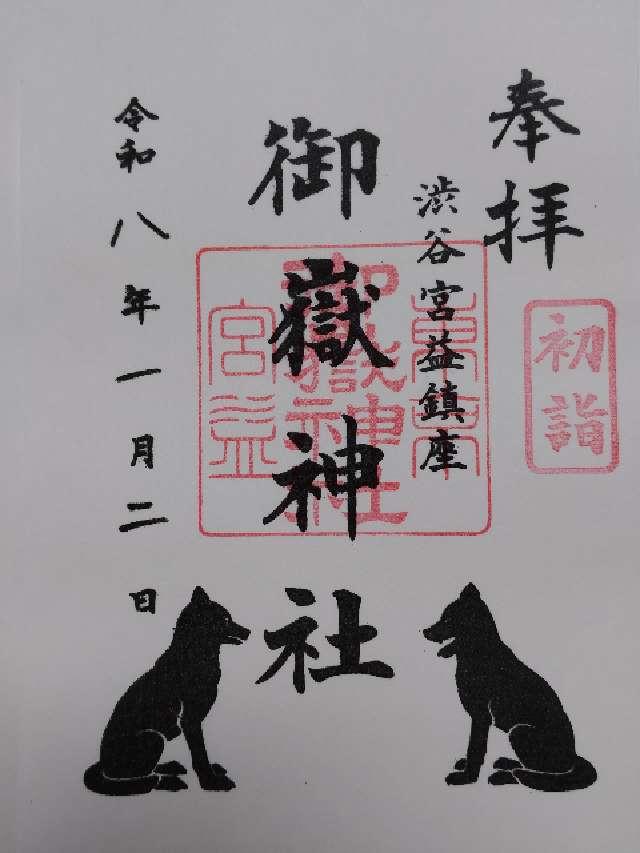 奉拝
初詣
渋谷宮益鎮座
御嶽神社
東京
御嶽神社
宮益
令和八年一月二日